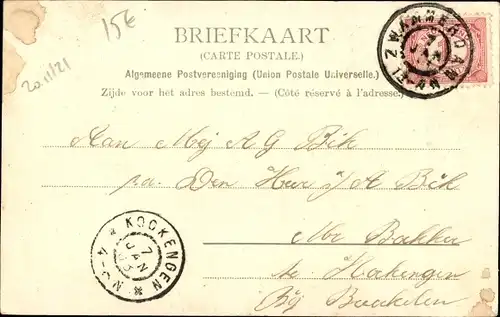 15€
20.11/21
BRIEFKAART
(CARTE POSTALE.)
Algemeene Postvereeniging (Union Postale Universelle.)
Zijde voor het adres bestemd. — (Côté réservé à l'adresse.)
ZWAMMERDAM
JAN
Aan Mej A G Bik
p.a. Den Heer J A Bik
Mr Bakker
te
Bij
KOCKENGEN
7
JAN
4-5 N